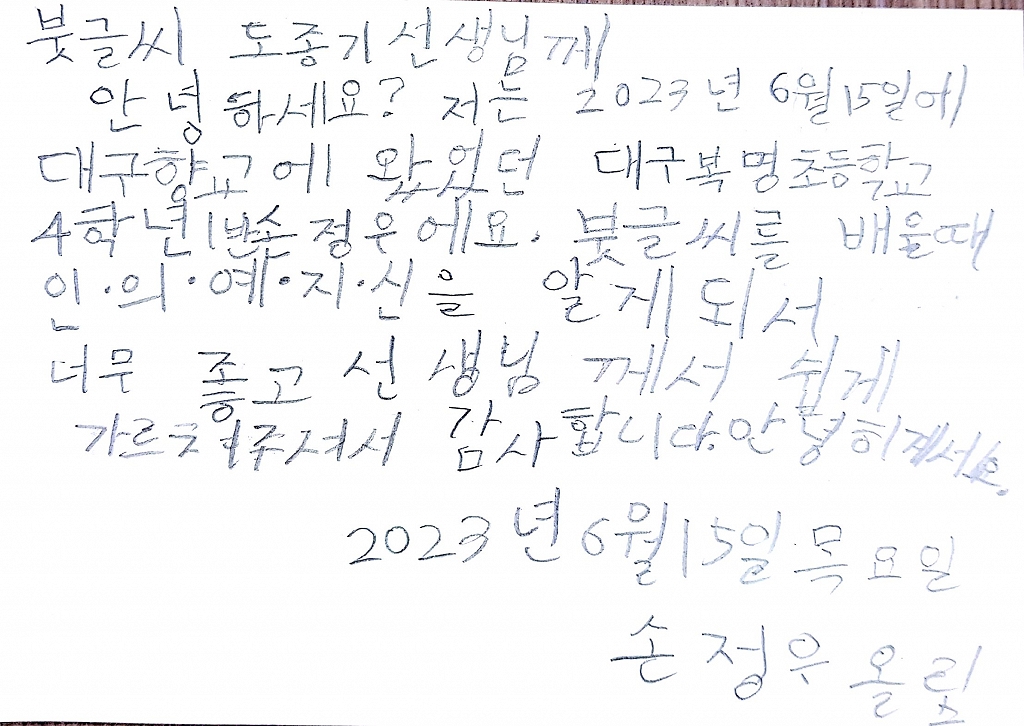 붓글씨 도종기선생님께
안녕하세요? 저는 2023년 6월15일에
대구향교에 왔었던 대구복명초등학교
4학년1반손정우에요. 붓글씨를 배울때
인·의·예·지·신을 알게되서
너무 좋고 선생님께서 쉽게
가르쳐주셔서 감사합니다.안녕히계서요.
2023년6월15일목요일
손정우올림